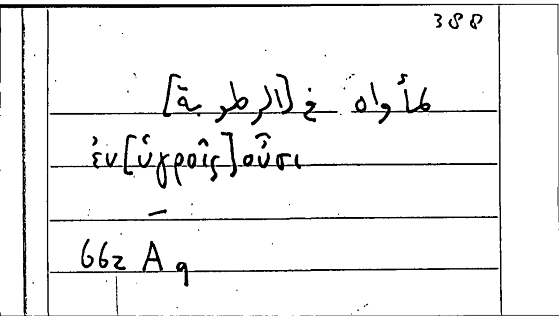 388
مأواه في [الرطوبة]
ἐν [ὑγροῖς] οὖσι
–
662 A 9